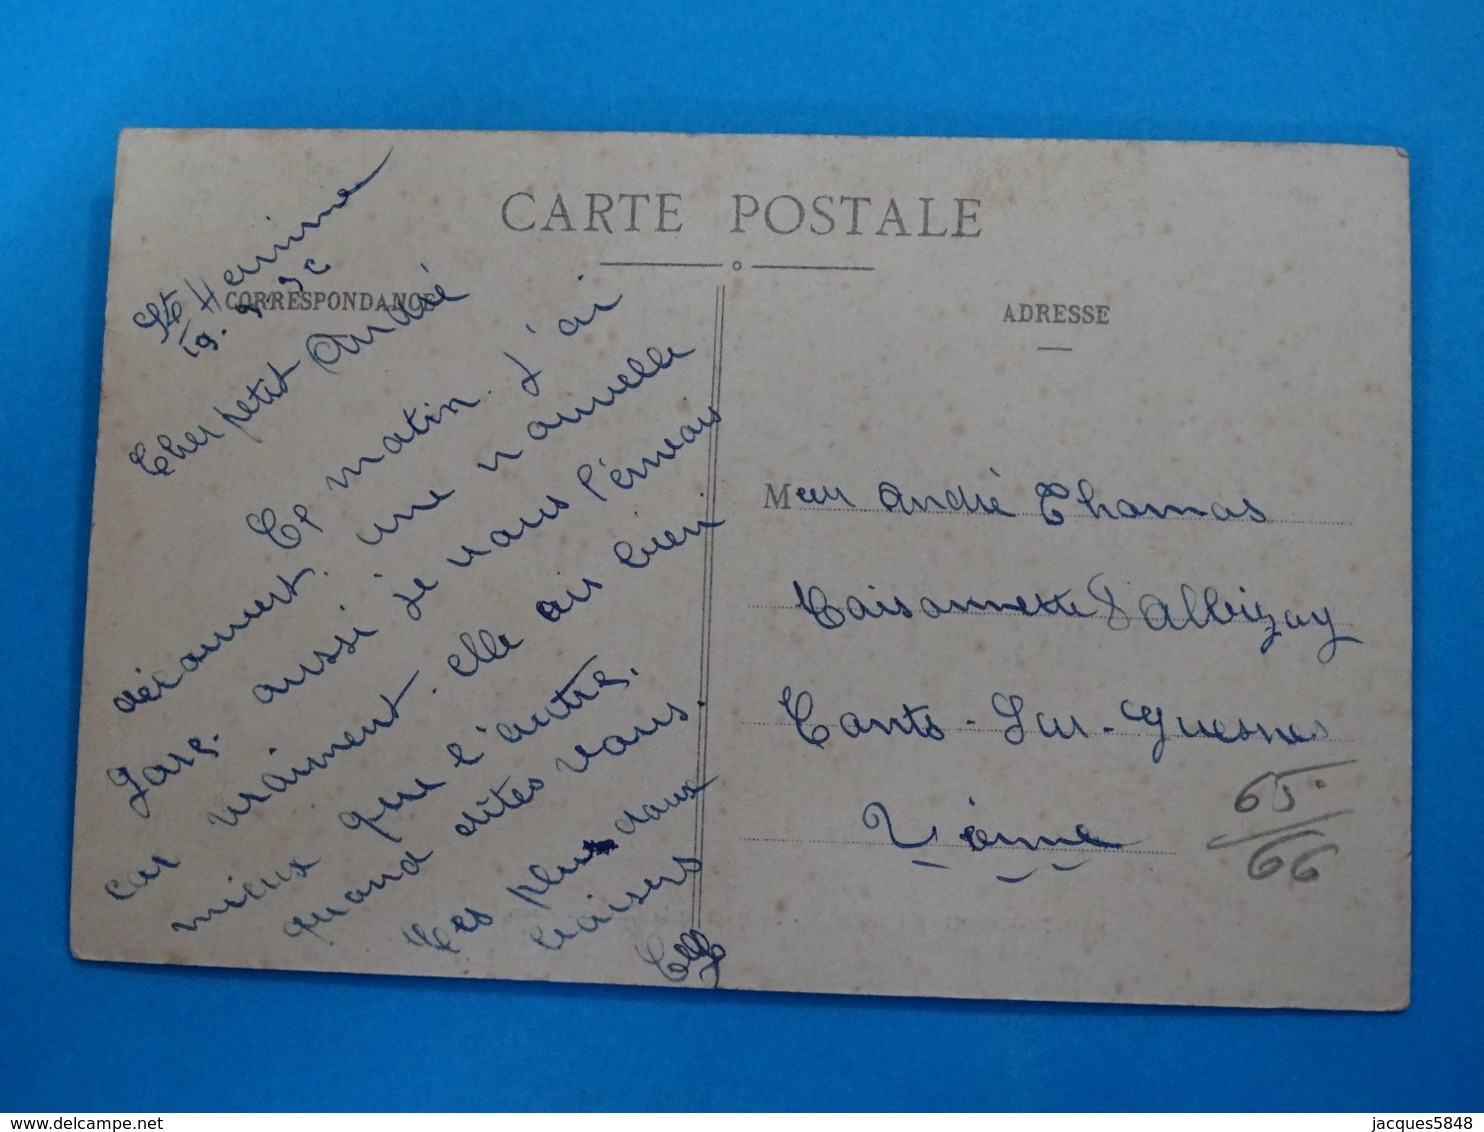 CARTE POSTALE
CORRESPONDANCE
ADRESSE
Ste Hermine
19.
Cher petit André
Ce matin j'ai
découvert une nouvelle
gare. aussi je vous l'envois
car vraiment elle est bien
mieux que l'autre.
quand dites vous.
Mes plus doux
baisers
Meur André Thomas
Maisonnette d'Albizay
Monts-Sur-Guesnes
Vienne
65
66
jacques5848